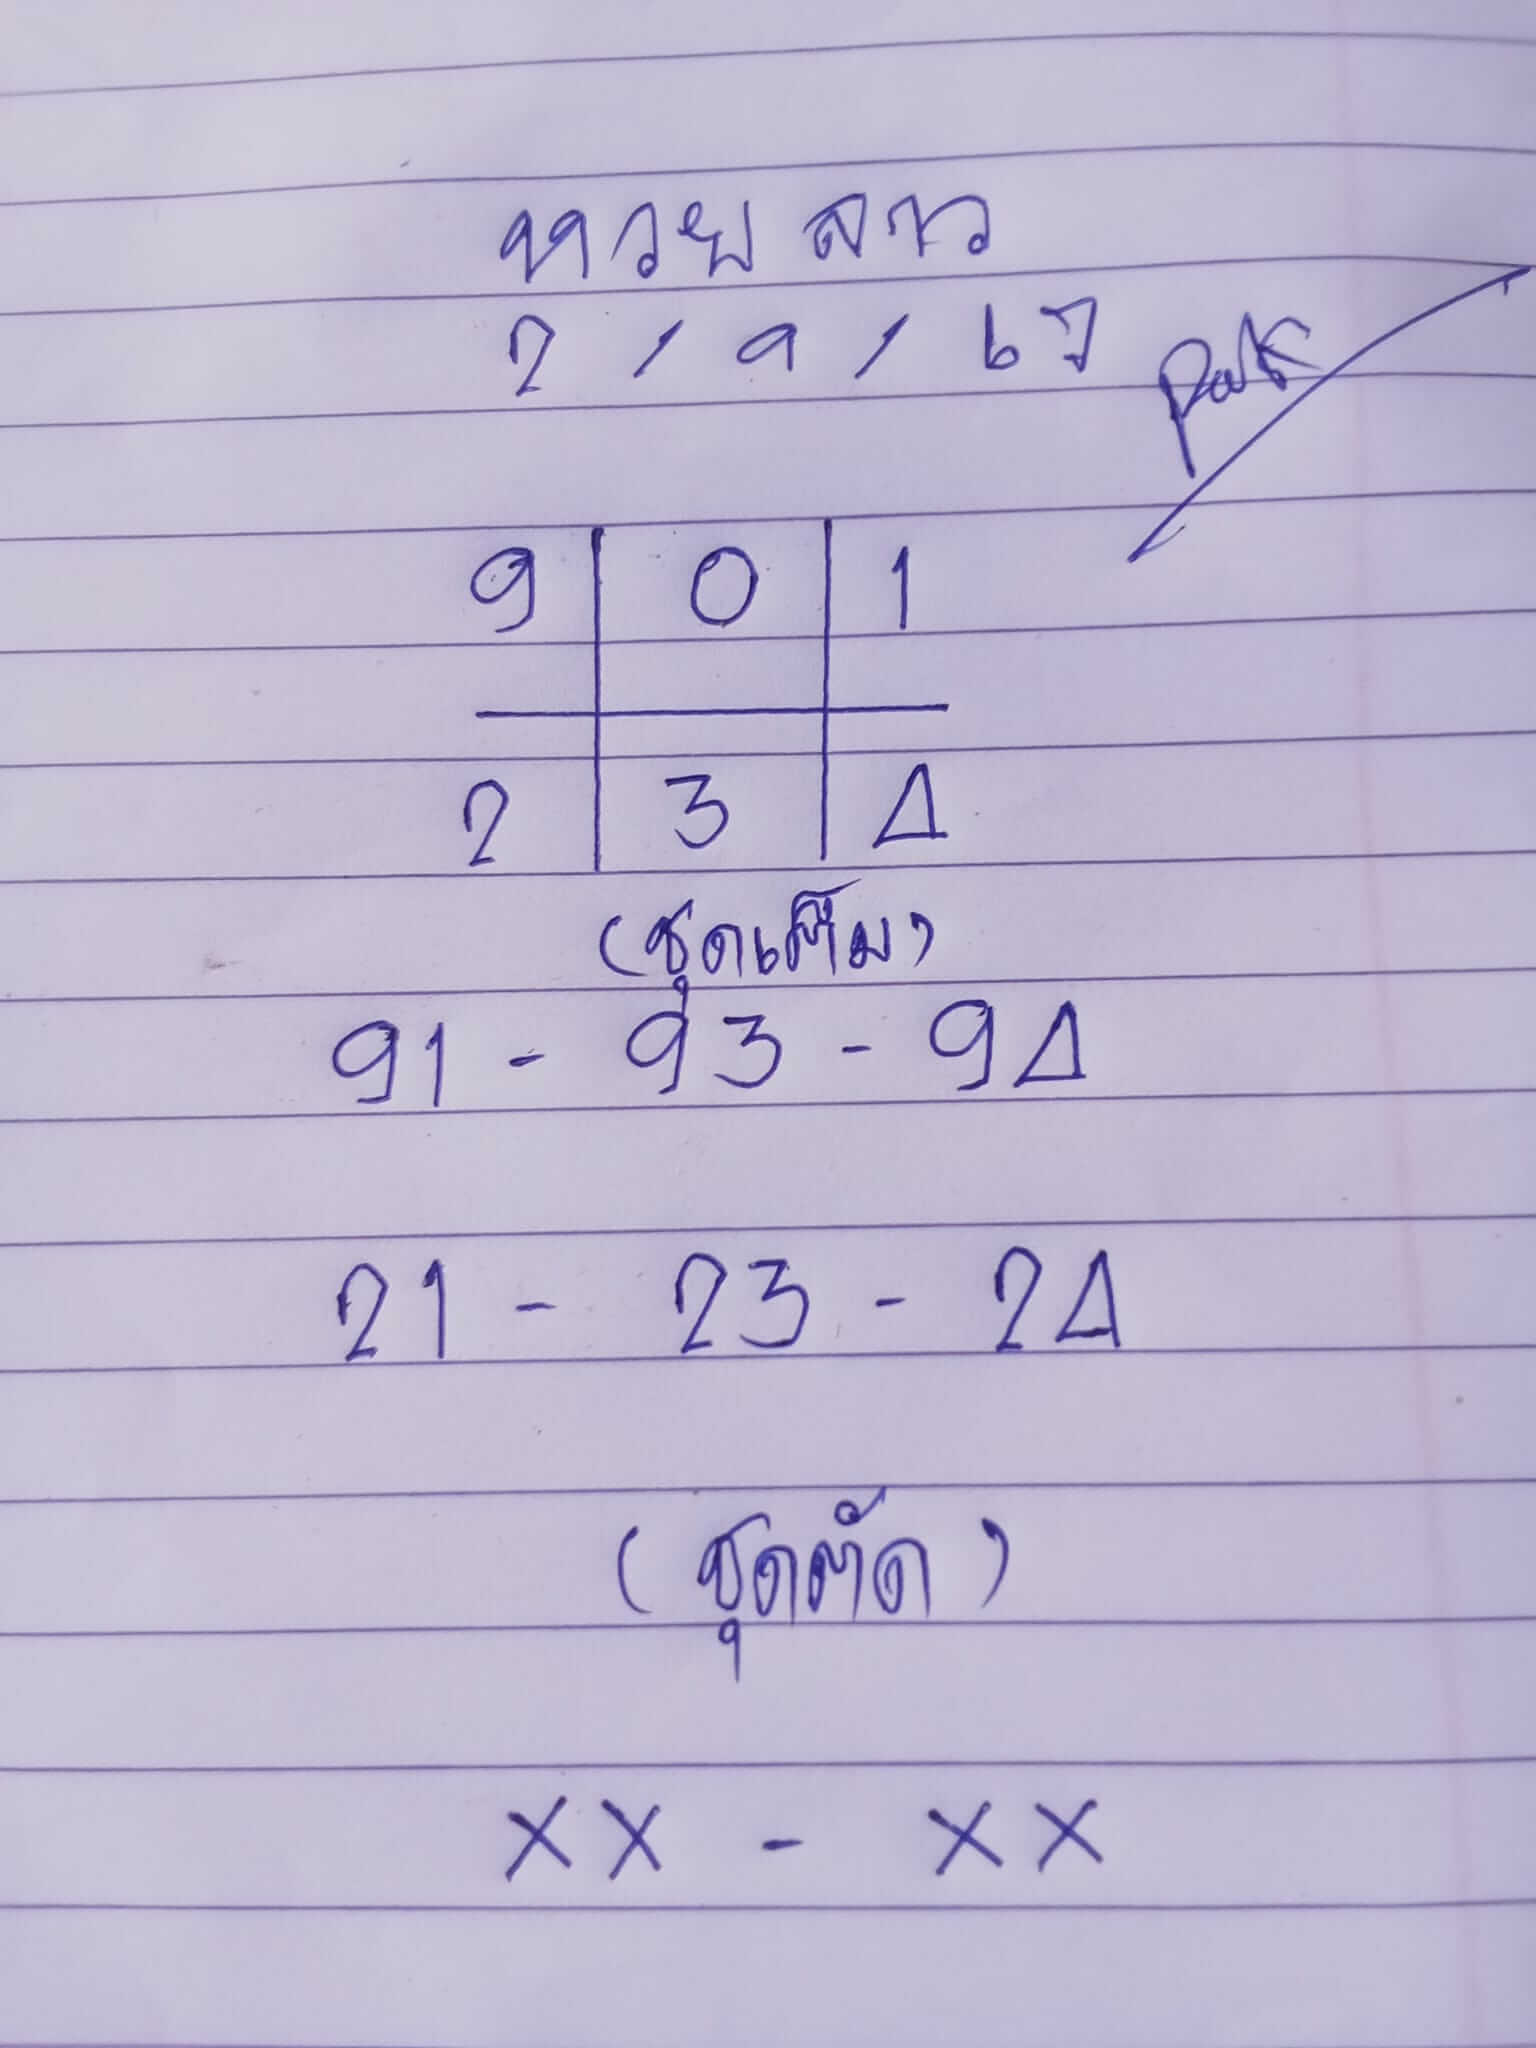 หวยลาว
2 / 9 / 67
Park
9 | 0 | 1
2 | 3 | 4
(ชุดเต็ม)
91 - 93 - 94
21 - 23 - 24
(ชุดตัด)
XX - XX